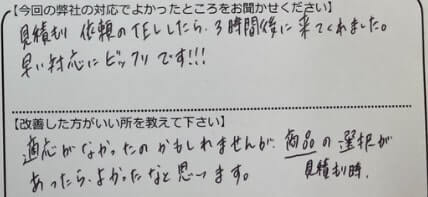 【今回の弊社の対応でよかったところをお聞かせください】
見積もり依頼のTELしたら、3時間後に来てくれました。
早い対応にビックリです!!!
【改善した方がいい所を教えて下さい】
適応がなかったのかもしれませんが、商品の選択が
見積もり時、
あったら、よかったなと思います。